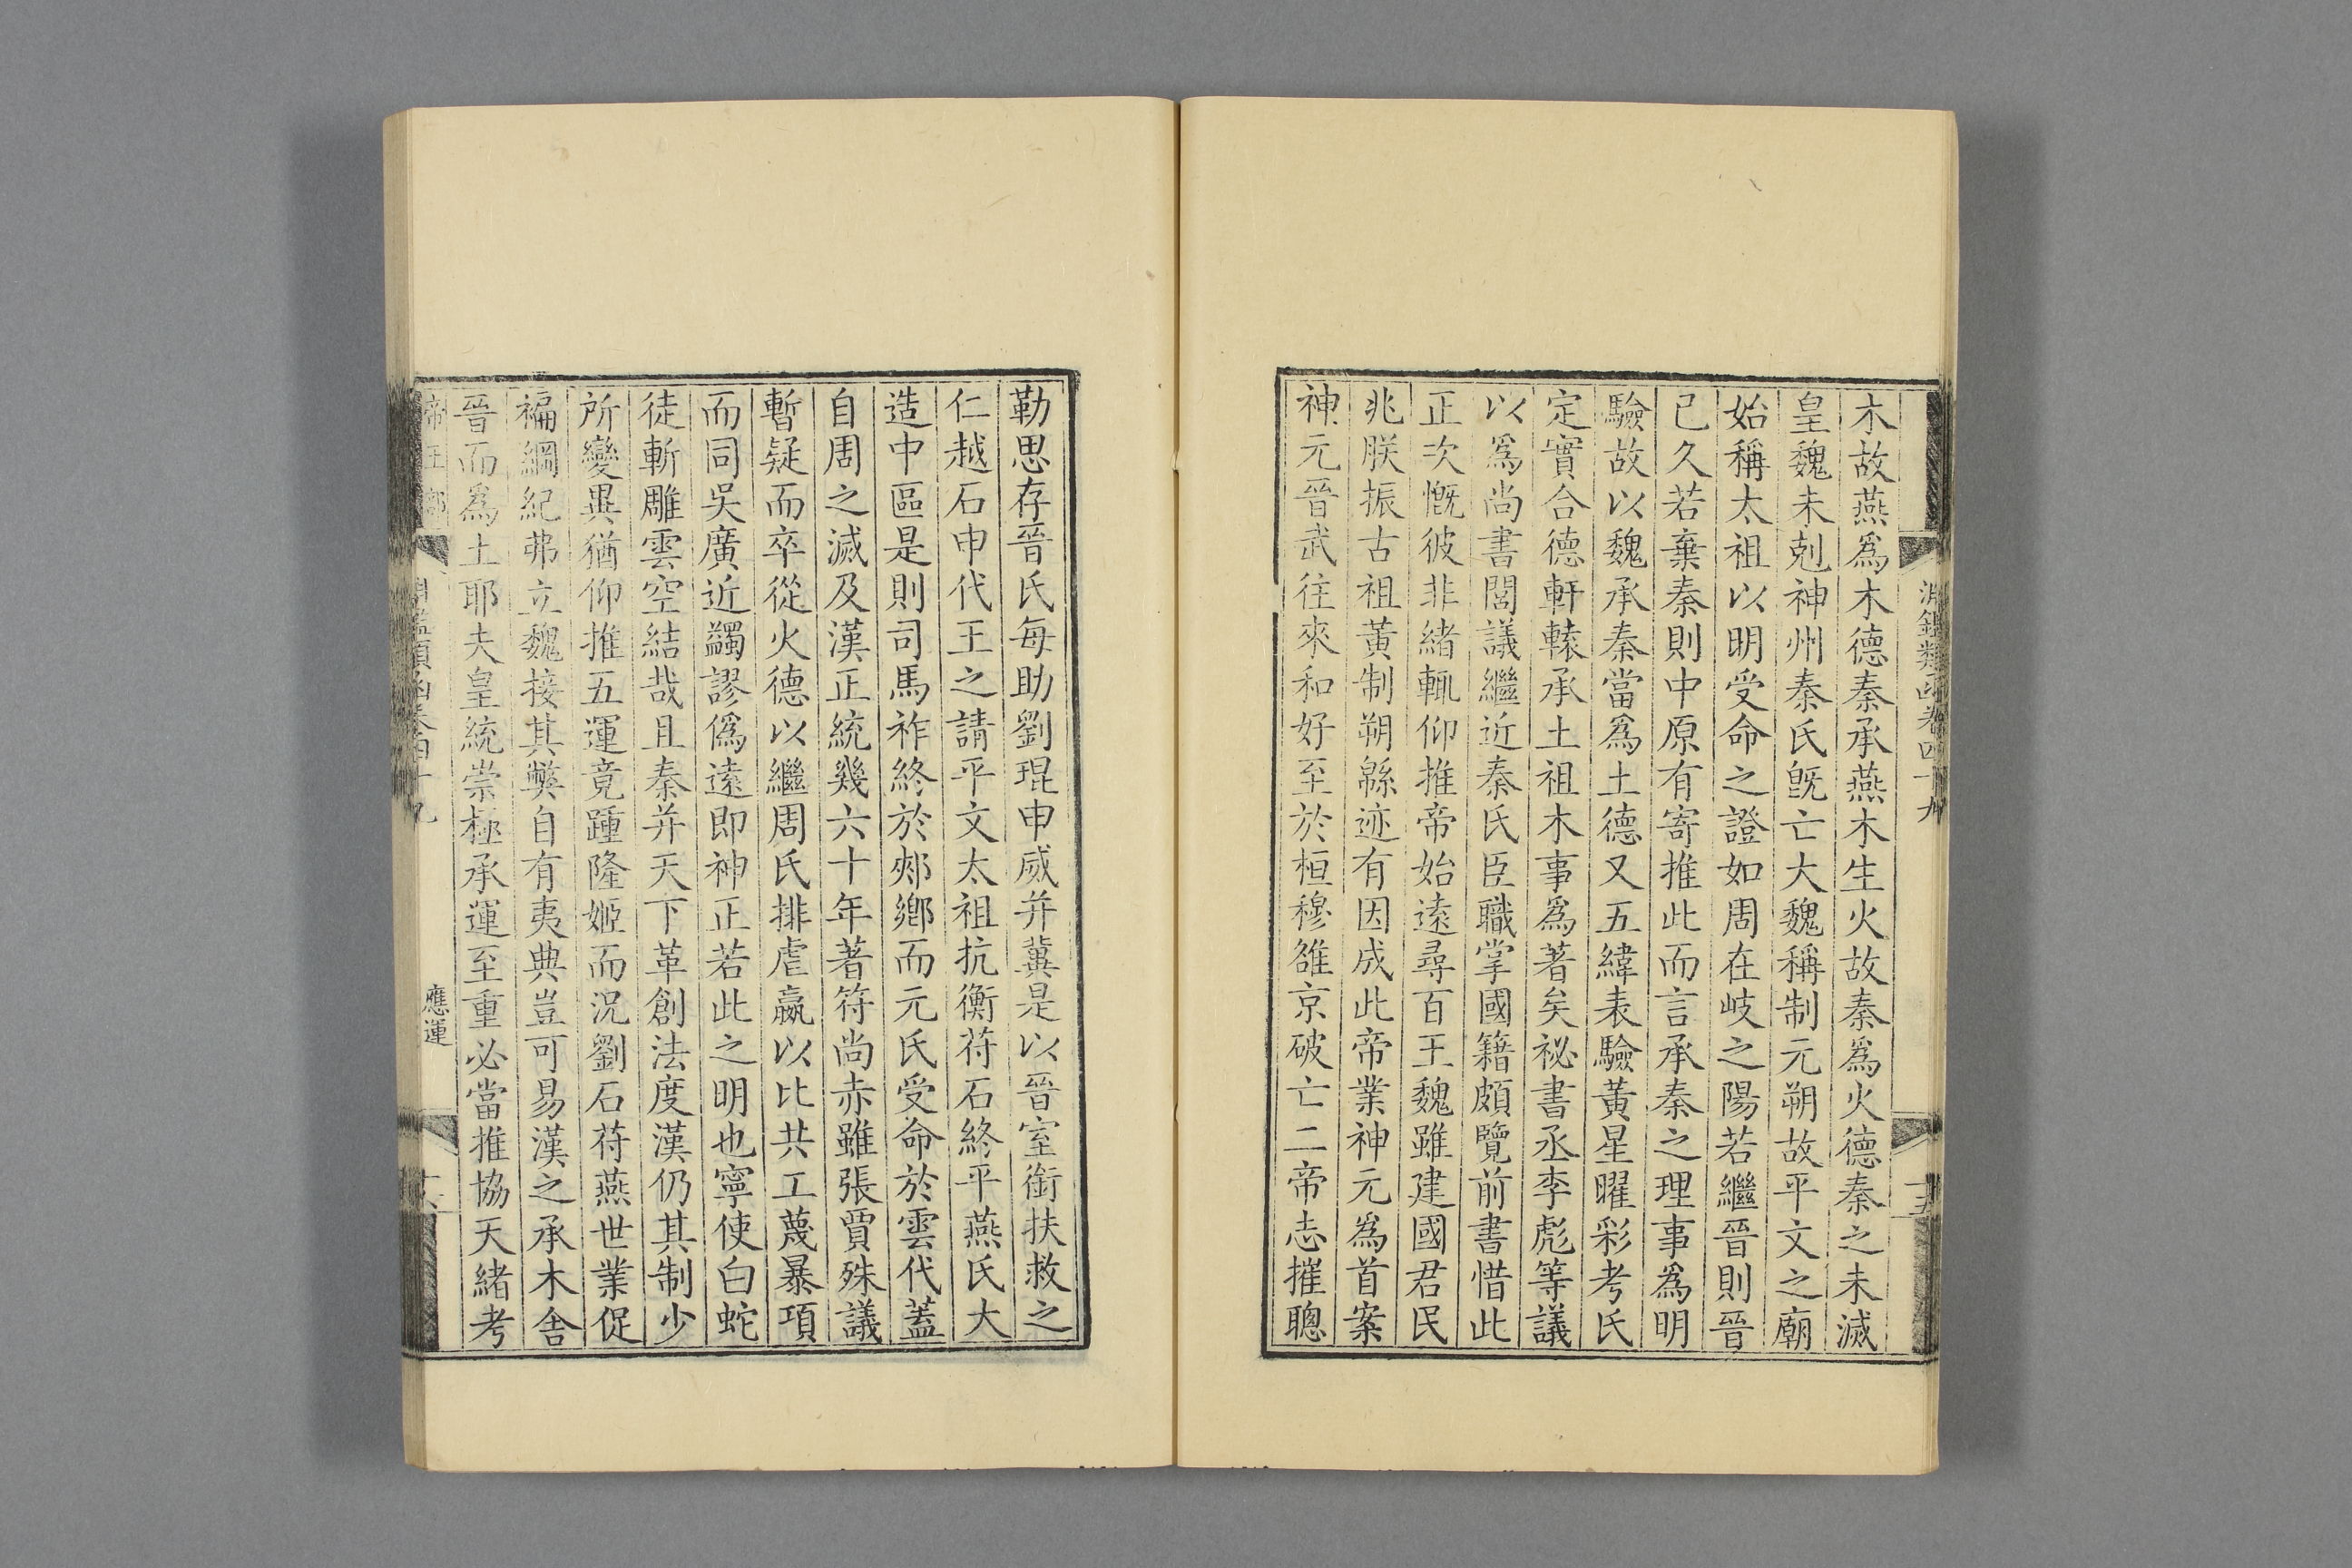 淵鑑類函卷四十九
十五
木故燕爲木德秦承燕木生火故秦爲火德秦之未滅
皇魏未剋神州秦氏旣亡大魏稱制元朔故平文之廟
始稱太祖以明受命之證如周在岐之陽若繼晉則晉
已久若棄秦則中原有寄推此而言承秦之理事爲明
驗故以魏承秦當爲土德又五緯表驗黃星曜彩考氏
定實合德軒轅承土祖木事爲著矣祕書丞李彪等議
以爲尚書閭議繼近秦氏臣職掌國籍頗覽前書惜此
正次慨彼非緒輒仰推帝始遠尋百王魏雖建國君民
兆朕振古祖黃制朔緜迹有因成此帝業神元爲首案
神元晉武往來和好至於桓穆雒京破亡二帝志摧聰
勒思存晉氏每助劉琨申威并冀是以晉室銜扶救之
仁越石申代王之請平文太祖抗衡苻石終平燕氏大
造中區是則司馬祚終於郟鄏而元氏受命於雲代蓋
自周之滅及漢正統幾六十年著符尚赤雖張賈殊議
暫疑而卒從火德以繼周氏排虐嬴以比共工蔑暴項
而同吳廣近蠲謬僞遠即神正若此之明也寧使白蛇
徒斬雕雲空結哉且秦并天下革創法度漢仍其制少
所變異猶仰推五運竟踵隆姬而況劉石苻燕世業促
褊綱紀弗立魏接其弊自有夷典豈可易漢之承木舍
晉而爲土耶夫皇統崇極承運至重必當推協天緒考
帝王部
淵鑑類函卷四十九
應運
十六